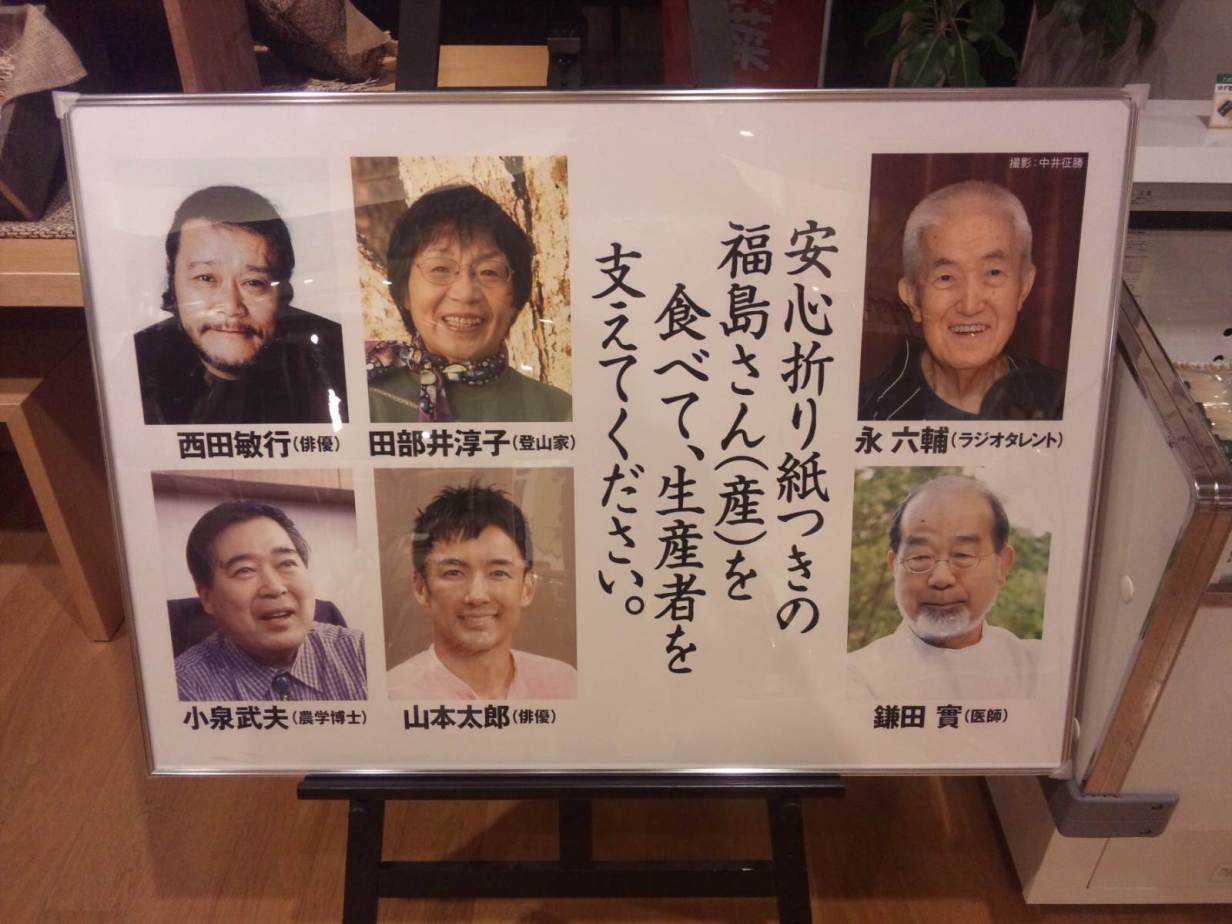 菜
撮影：中井征勝
安心折り紙つきの
福島さん(産)を
食べて、生産者を
支えてください。
西田敏行(俳優)
田部井淳子(登山家)
永 六輔(ラジオタレント)
小泉武夫(農学博士)
山本太郎(俳優)
鎌田 實(医師)